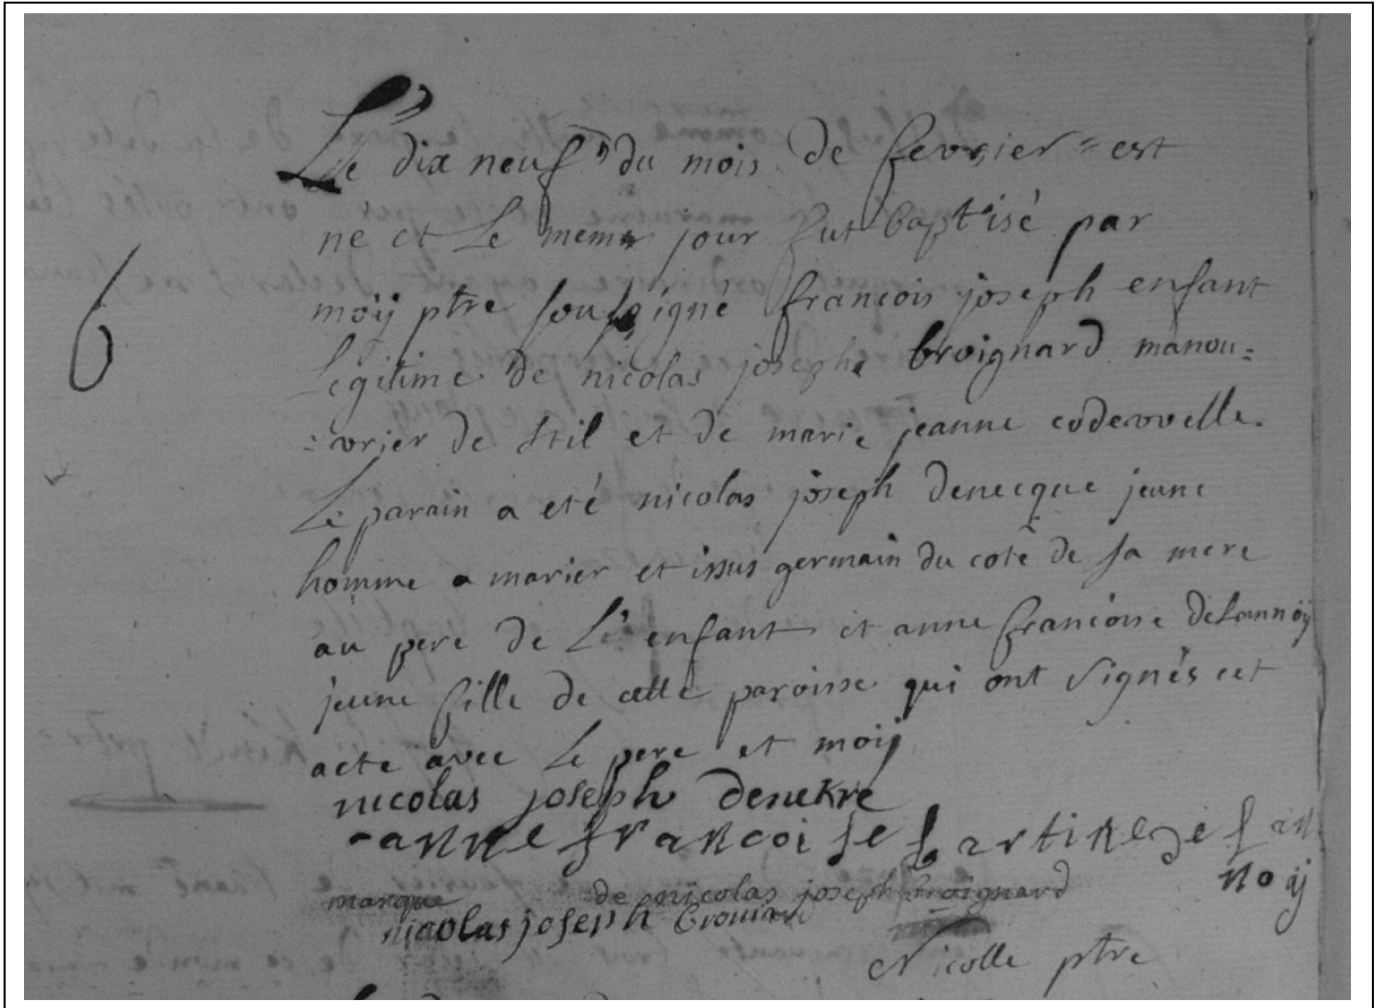 Le dix neuf du mois de fevrier est
né et Le meme jour fut baptisé par
6
moÿ ptre soussigné francois joseph enfant
Legitime de nicolas joseph broignard manou=
=vrier de stil et de marie jeanne codevvelle.
Le parain a eté nicolas joseph denecque jeune
homme a marier et issus germain du coté de sa mere
au pere de L'enfant et anne francoise deLannoÿ
jeune fille de cette paroisse qui ont signés cet
acte avec Le pere et moiȷ
nicolas joseph denekre
anne francoise de Lan
noÿ
marque de nicolas joseph broignard
nicolas joseph
Nicolle ptre